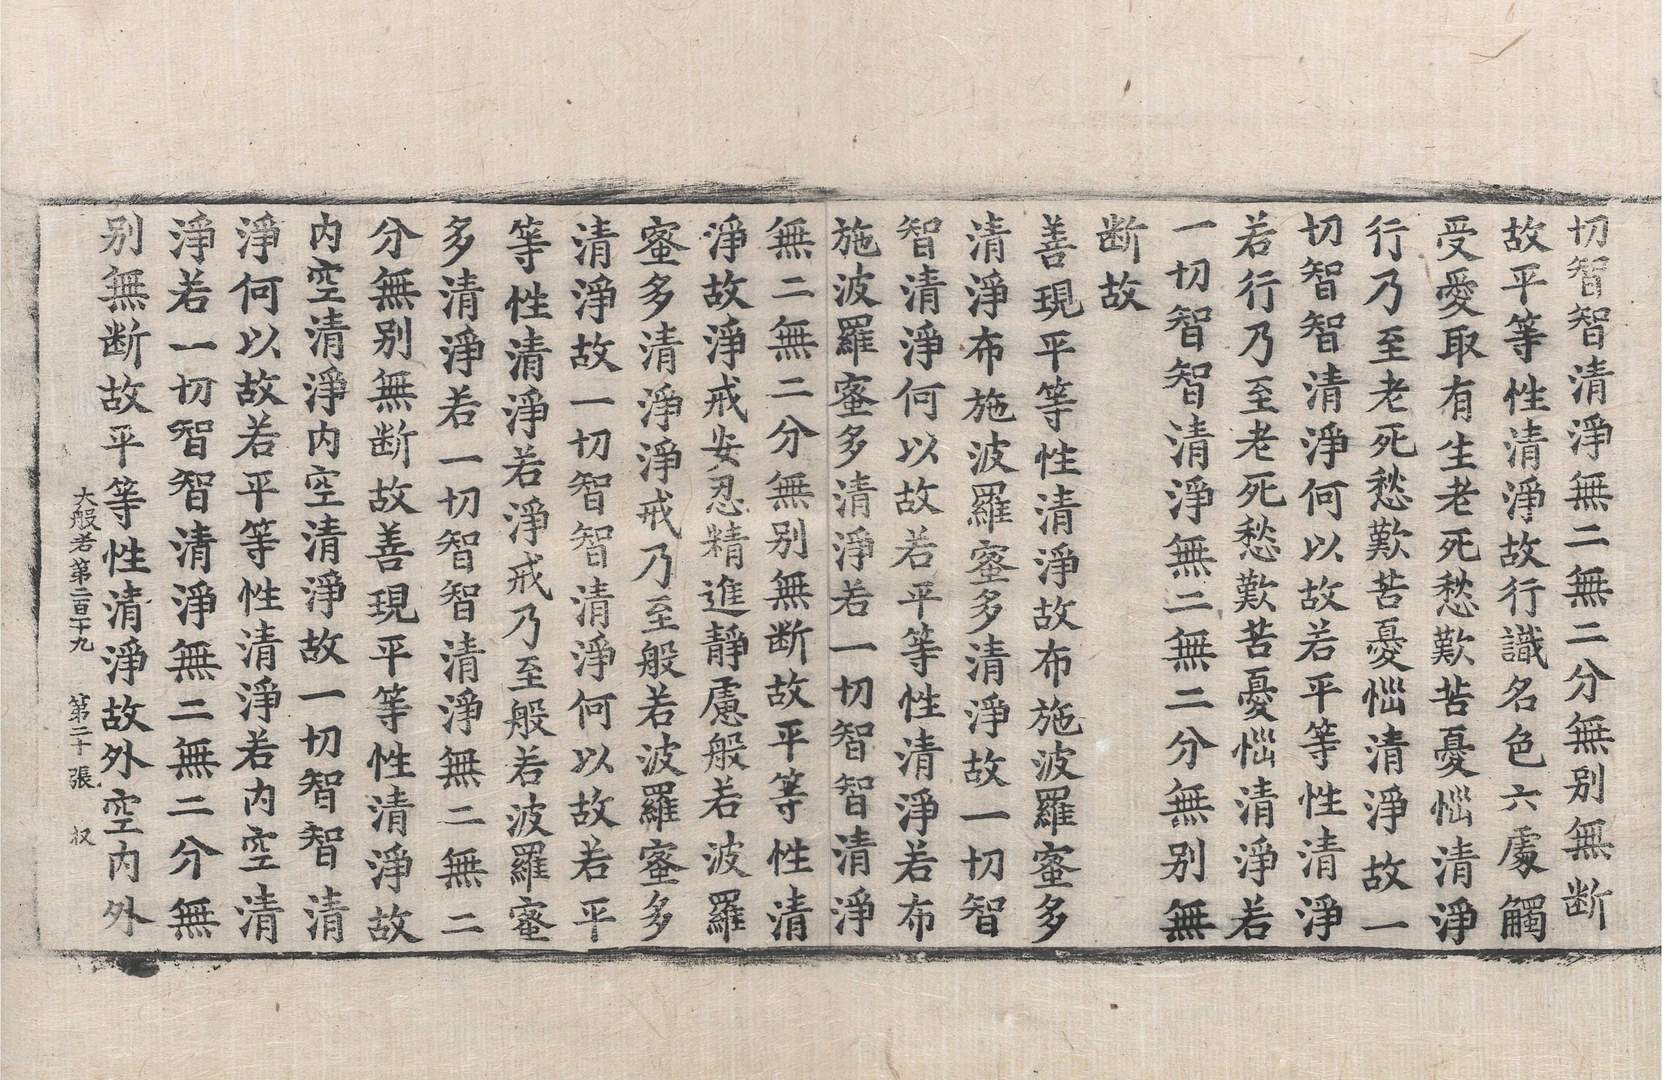 切智智清淨無二無二分無別無断
故平等性清淨故行識名色六處觸
受愛取有生老死愁歎苦憂惱清淨
行乃至老死愁歎苦憂惱清淨故一
切智智清淨何以故若平等性清淨
若行乃至老死愁歎苦憂惱清淨若
一切智智清淨無二無二分無別無
断故
善現平等性清淨故布施波羅蜜多
清淨布施波羅蜜多清淨故一切智
智清淨何以故若平等性清淨若布
施波羅蜜多清淨若一切智智清淨
無二無二分無別無断故平等性清
淨故淨戒安忍精進靜慮般若波羅
蜜多清淨淨戒乃至般若波羅蜜多
清淨故一切智智清淨何以故若平
等性清淨若淨戒乃至般若波羅蜜
多清淨若一切智智清淨無二無二
分無別無断故善現平等性清淨故
内空清淨内空清淨故一切智智清
淨何以故若平等性清淨若内空清
淨若一切智智清淨無二無二分無
别無断故平等性清淨故外空内外
大般若第二百二十九 第二十張 权